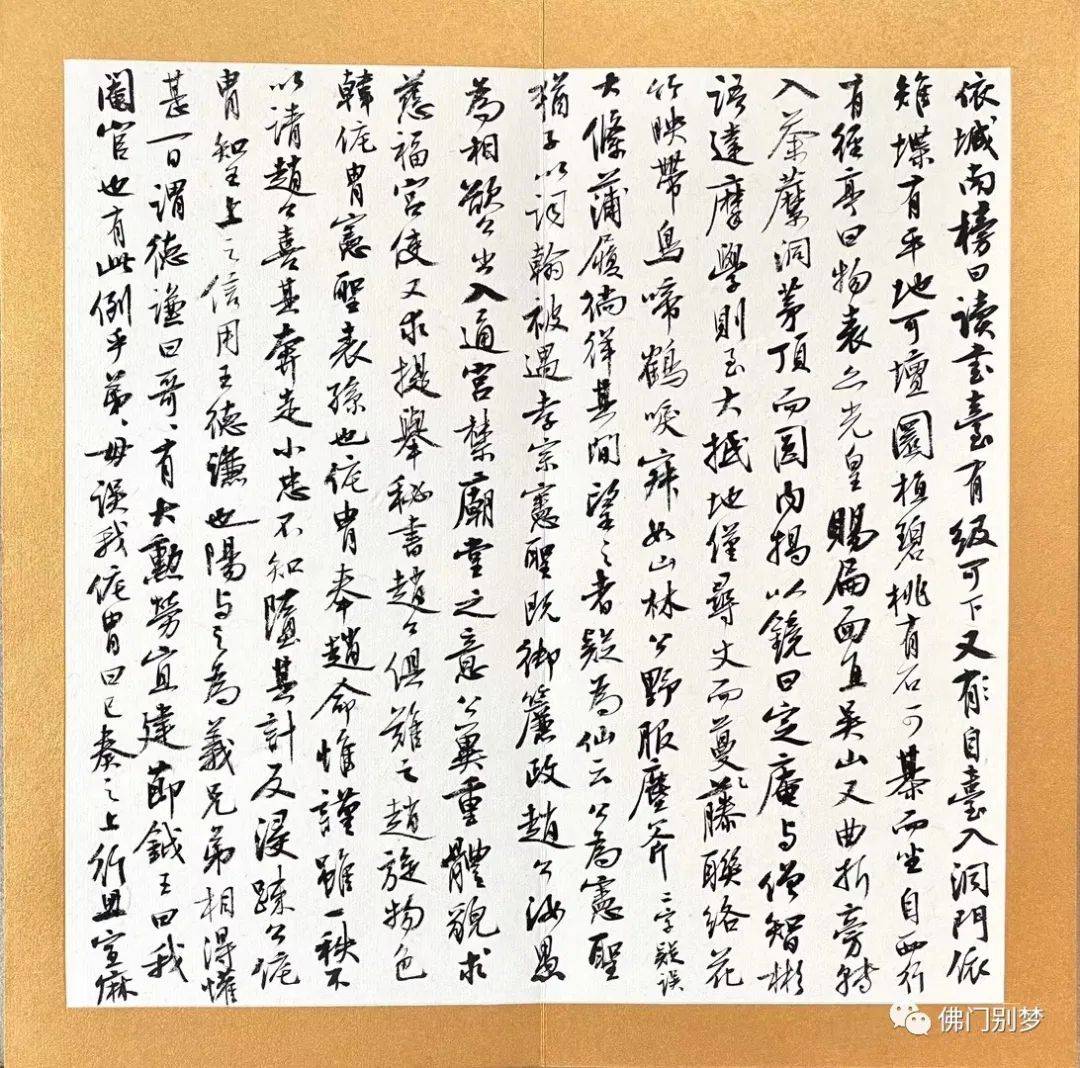 依城南榜曰读书臺有级可下又有自臺入洞門依
雉堞有平地可壇圃植碧桃有石可棊而坐自西行
有径亭曰物表亦光皇賜扁面直吴山又曲折旁轉
入荼蘼洞茅頂而圆内揭以鏡曰定庵与僧智彬
語達摩學則至大抵地僅尋丈而蔓藤聯络花
竹映帶鳥啼鶴唳寂如山林公野服塵斧二字疑误
大絛蒲履徜徉其間望之者疑為仙云公為憲聖
猶子以词翰被遇孝宗憲聖既御簾政趙公汝愚
為相欲公出入通宫禁廟堂之意公冀重體貌求
慈福宫使又求提舉秘書趙公俱難之趙旋物色
韓侂胄憲聖表孫也侂胄奉趙命惟謹雖一秩不
以请趙公喜其奔走小忠不知墮其計反浸踈公侂
胄知王上之信用王德谦也陽与之為義兄弟相得懽
甚一日謂德谦曰哥〻有大勳勞宜建節鉞王曰我
閹官也有此例乎弟〻毋误我侂胄曰已奏之上行且宣麻
佛门别梦